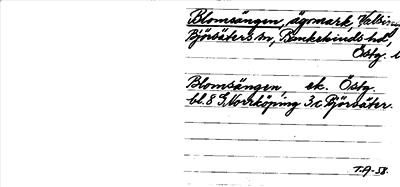 Blomsängen, ägomark,
Björsäters sn, Bankekinds hd,
Östg. l
Blomsängen, ek. Östg.
bl. 8 S Norrköping 3 c Björsäter.
T.A-58.